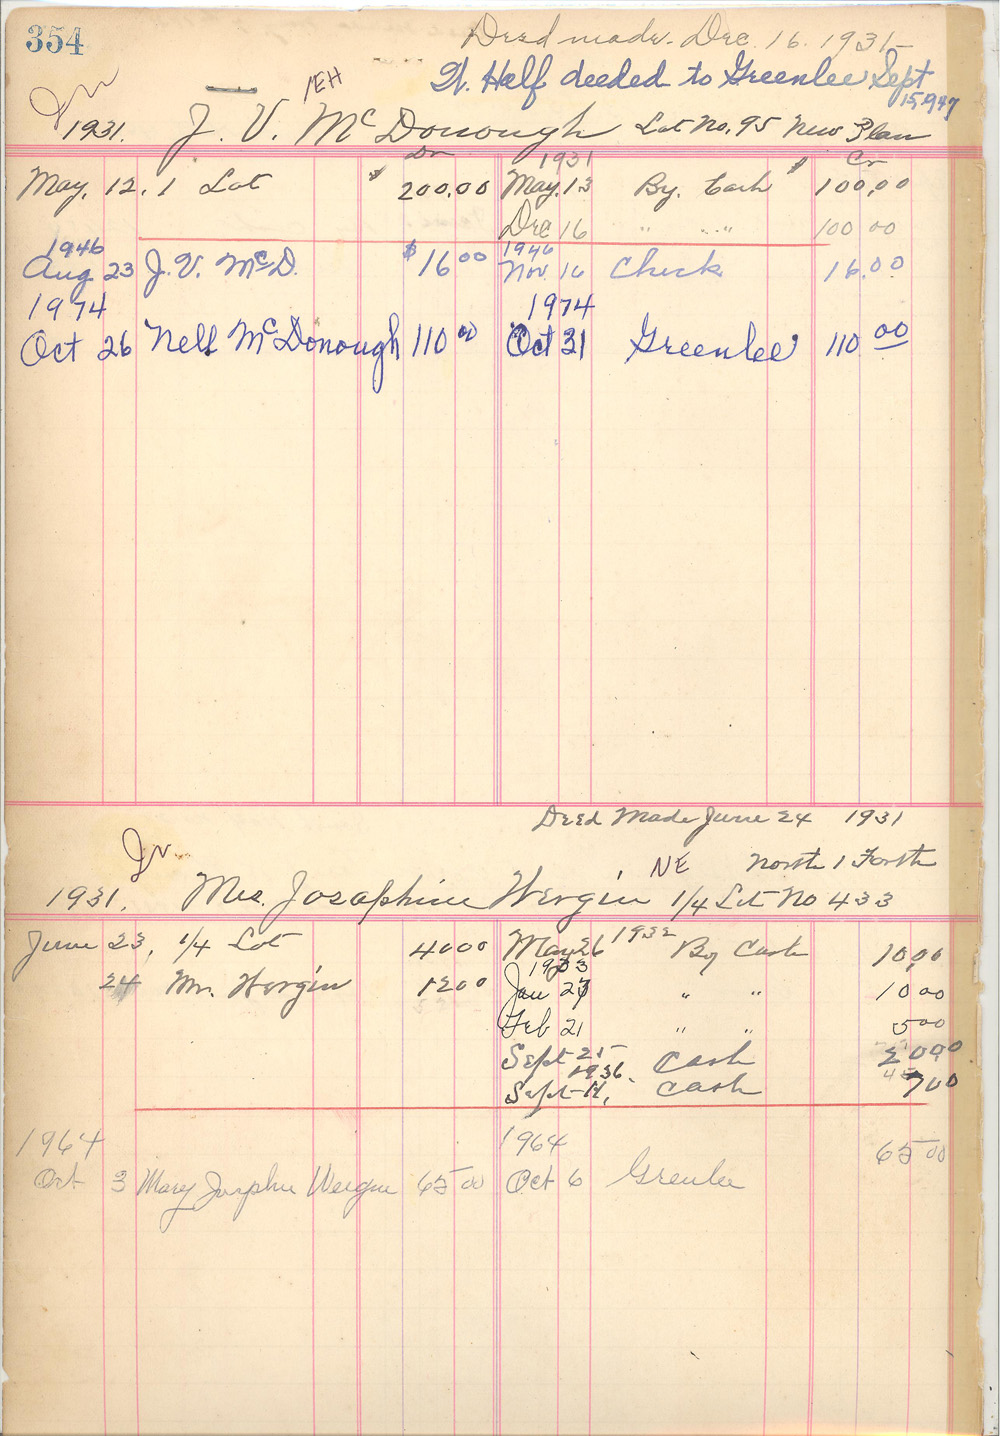 354
Deed made. Dec. 16. 1931
W. Half deeded to Greenlee Sept
15 1947
1931. J. V. McDonough Lot No. 95 New Plan
Dr 1931 Cr
May. 12. 1 Lot $ 200.00 May. 13 By. Cash $ 100.00
Dec 16 " " 100 00
1946 1946
Aug 23 J. V. McD. $16 00 Nov. 16 Check 16.00
1974 1974
Oct 26 Nell McDonough 110 00 Oct 31 Greenlee 110 00
Deed Made June 24 1931
NE North 1 Forth
1931. Mrs. Josephine Wergin 1/4 Lot No 433
June 23, 1/4 Lot 40 00 May 26 1932 By Cash 10.00
1933
24 Mr. Wergin 12 00 Jan 27 " " 10 00
Feb 21 " " 5 00
Sept 25 Cash 20 00
1936.
Sept 11, Cash 7 00
1964 1964 65 00
Oct 3 Mary Josephine Wergin 65 00 Oct 6 Greenlee